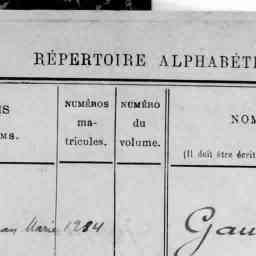 RÉPERTOIRE ALPHABÉTI
NUMÉROS ma- tricules.
NUMÉRO du volume.
NOM
MS.
(Il doit être écrit
Marie 1234
Gau